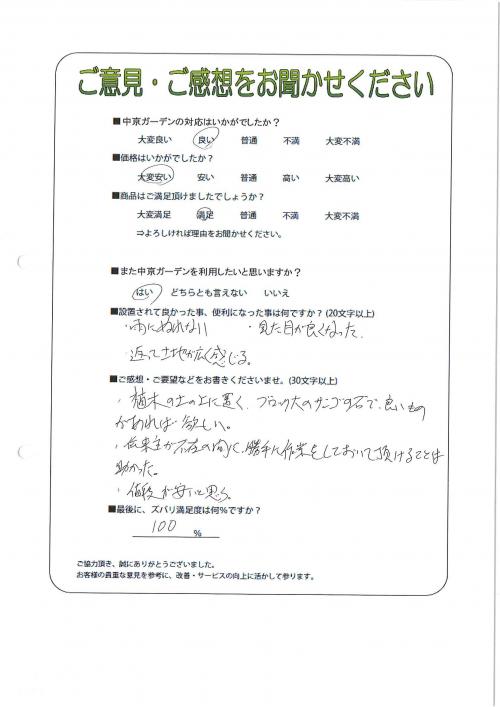 ご意見・ご感想をお聞かせください
■中京ガーデンの対応はいかがでしたか？
大変良い 良い 普通 不満 大変不満
■価格はいかがでしたか？
大変安い 安い 普通 高い 大変高い
■商品はご満足頂けましたでしょうか？
大変満足 満足 普通 不満 大変不満
⇒よろしければ理由をお聞かせください。
■また中京ガーデンを利用したいと思いますか？
はい どちらとも言えない いいえ
■設置されて良かった事、便利になった事は何ですか？(20文字以上)
・雨にぬれない ・見た目が良くなった。
・返って土地が広く感じる。
■ご感想・ご要望などをお書きくださいませ。(30文字以上)
・植木の土の上に置く、ブロック大のサンゴの石で、良いもの
があれば欲しい。
・依来主が不在の間に、勝手に作業をしておいて頂けることは
助かった。
・値段が安いと思う。
■最後に、ズバリ満足度は何%ですか？
100 %
ご協力頂き、誠にありがとうございました。
お客様の貴重な意見を参考に、改善・サービスの向上に活かして参ります。